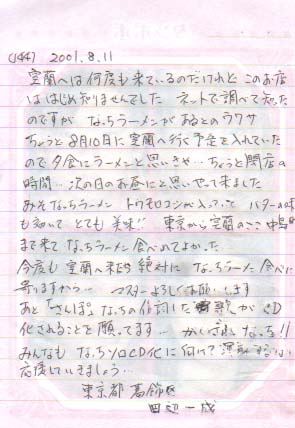 (144) 2001.8.11
室蘭へは何度も来ているのだけれど このお店
ははじめ知りませんでした ネットで調べて知った
のですが なっちラーメンがあるとのウワサ
ちょうど8月10日に室蘭へ行く予定を入れていた
ので夕食にラーメンと思いきや…ちょうど閉店の
時間…次の日のお昼にと思いやって来ました
みそなっちラーメン トウモロコシが入ってて バターの味
も効いて とても美味!! 東京から室蘭のここ中島
まで来て なっちラーメン食べれてよかった
今度も室蘭へ来たら絶対に なっちラーメン食べに
寄りますから… マスターよろしくお願いします
あと「さんぽ」なっちの作詞した 歌がCD
化されることを願ってます… がんばれ なっち!!
みんなも なっちソロCD化に向けて
応援していきましょう…
東京都 葛飾区
田辺一成